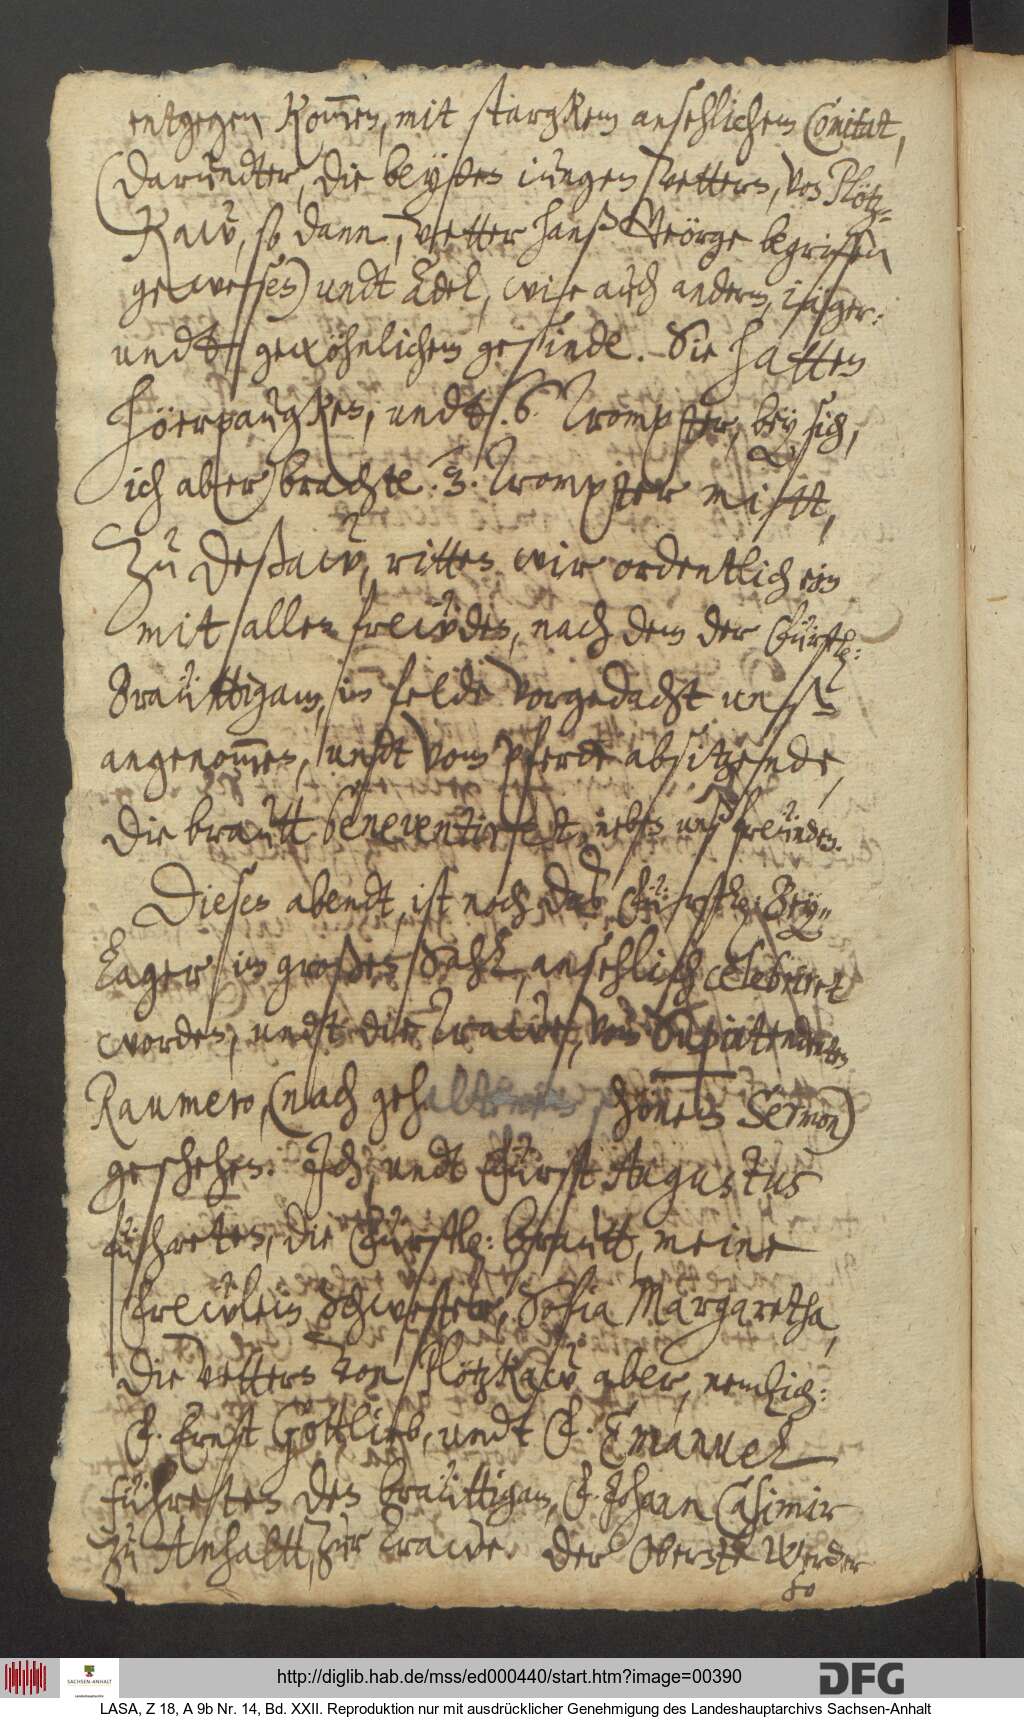 entgegen kom̅en, mit stargkem ansehlichem Comitat,
(darundter, die beyden iungen vettern, von Plötz-
kaw, so dann, vetter Hanß Geörge begriffen
gewesen) undt Adel, wie auch anderm, iäger-
undt gewöhnlichem gesinde. Sie hatten
Höerpaugken, undt .6. Trompter, bey sich,
ich aber brachte .3. Trompter mitt,
Zu Deßaw, ritten wir ordentlich ein
mit allen frewden, nach dem der Fürstl:
Breüttigam, im felde vorgedacht unß
angenom̅en, undt vom pferde absitzende,
die brautt beneventiret, nebst unß freünden.
Dieses abendt, ist noch das Fürstl: Bey-
lager im großen Sahl, ansehlich celebriret
worden, undt die Trawe, von Superintendenten
Raumero, (nach gehaltenem schönem Sermon)
geschehen. Ich, undt Fürst Augustus
führeten, die Fürstl: brautt, meine
Frewlein Schwester, Sofia Margaretha,
die vettern von Plötzkaw aber, nemlich:
F. Ernst Gottlieb, undt F. Emanuel
führeten den breüttigam, F. Johann Casimir
zu Anhaltt, zur Trawe. Der Oberste Werder
so
http://diglib.hab.de/mss/ed000440/start.htm?image=00390
SACHSEN-ANHALT
DFG
LASA, Z 18, A 9b Nr. 14, Bd. XXII. Reproduktion nur mit ausdrücklicher Genehmigung des Landeshauptarchivs Sachsen-Anhalt